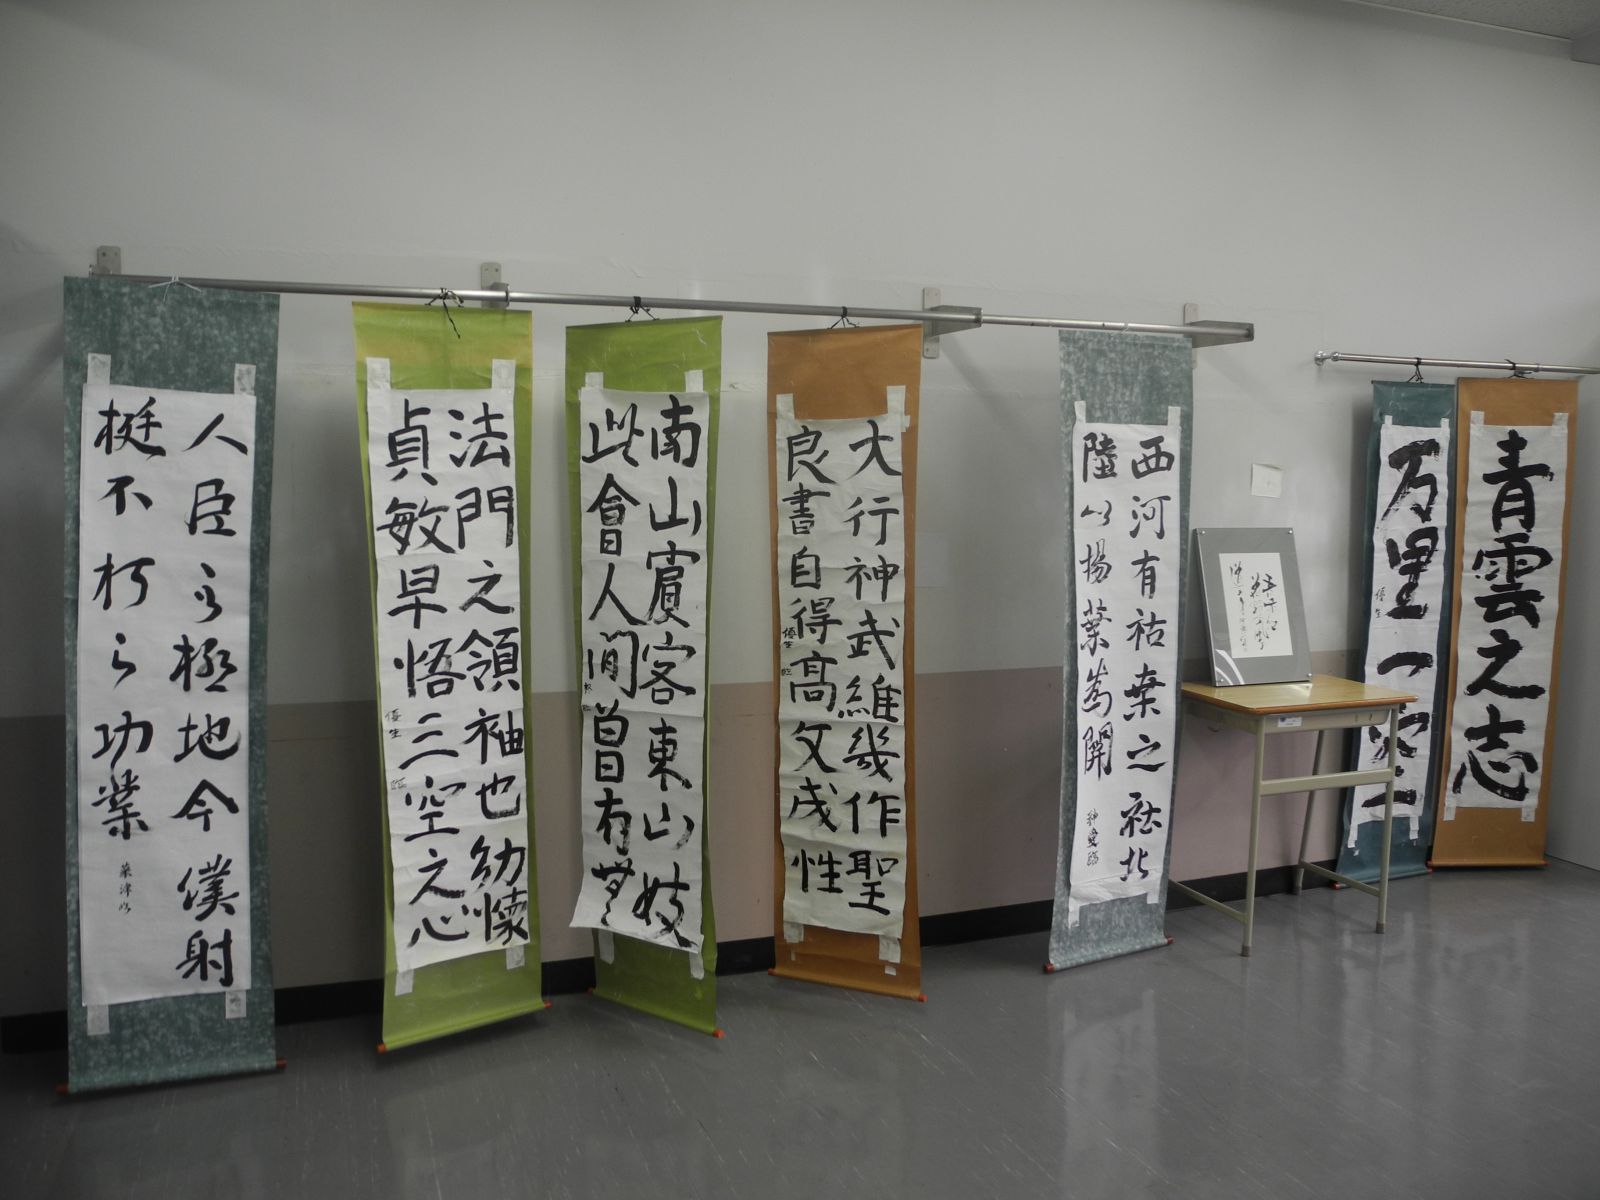 人臣之極地今僕射
挺不朽之功業
法門之領袖也幼懐
貞敏早悟三空之心
優生 臨
南山賓客東山妓
此會人間曽有無
大行神武維幾作聖
良書自得高文成性
優生 臨
西河有祜之北
陸以揚葉開
青雲之志
万里一空
優生